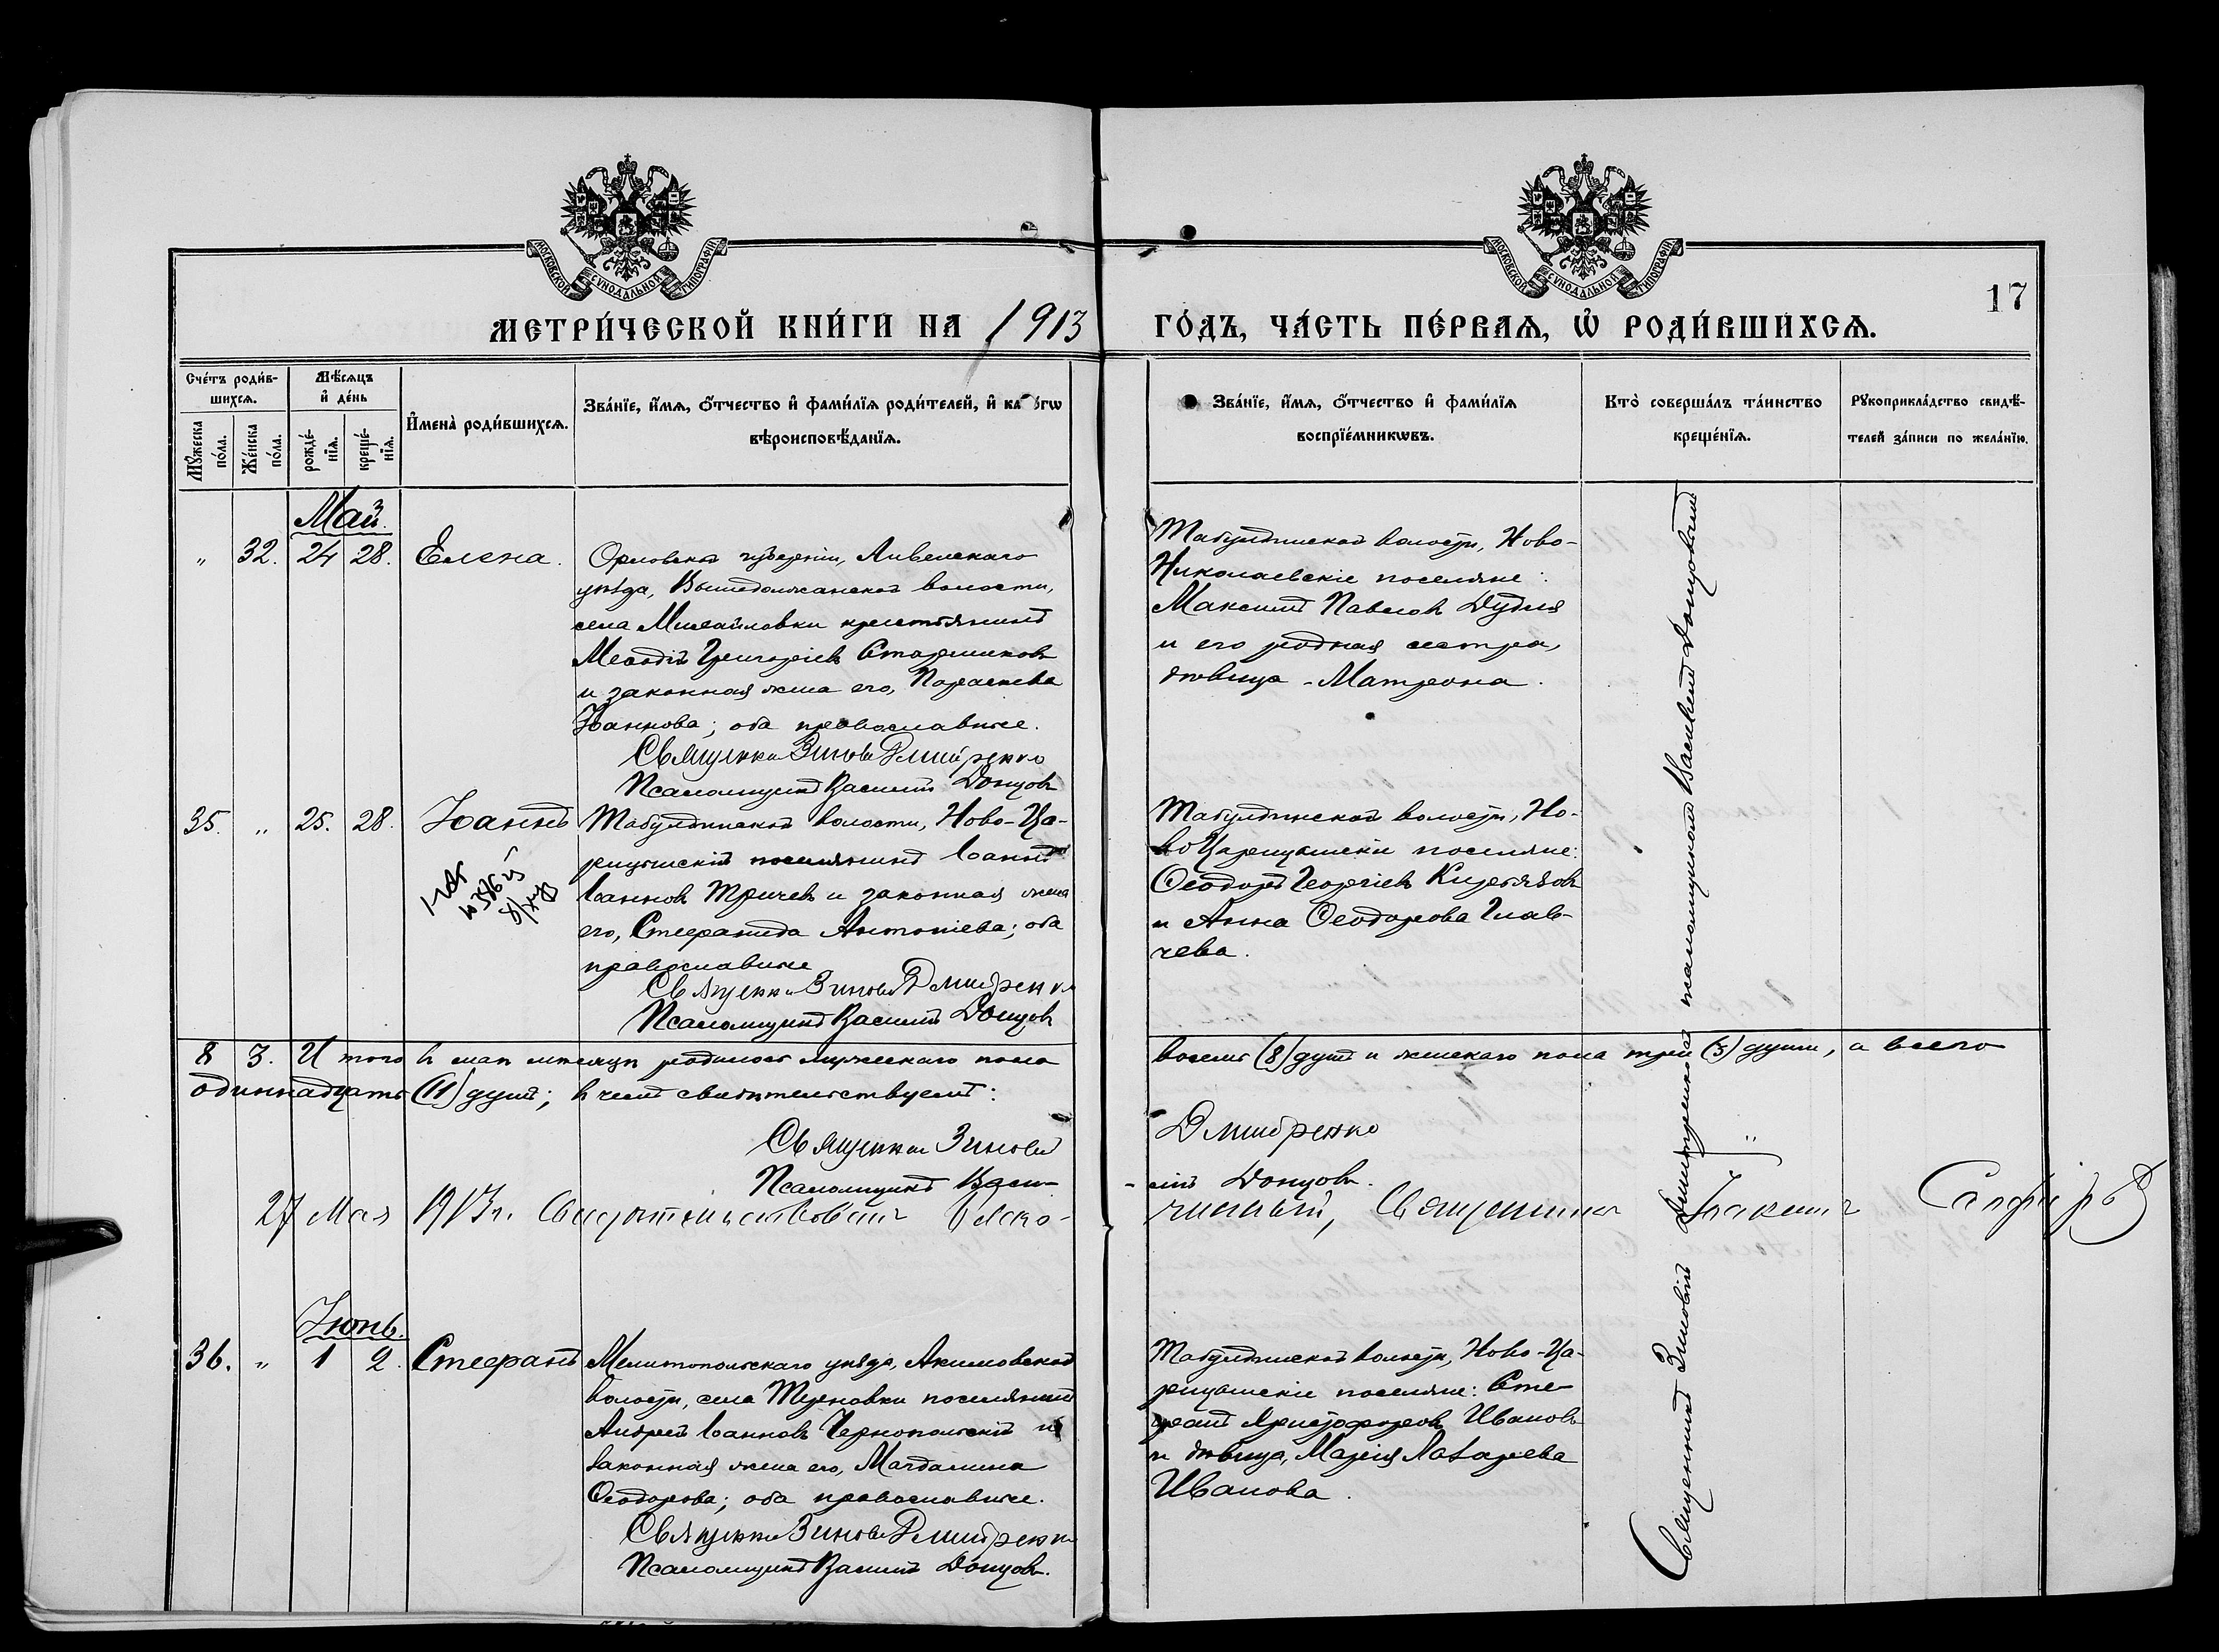 МОСКОВСКОЙ СУНОДАЛЬНОЙ ТИПОГРАФІИ
МОСКОВСКОЙ СУНОДАЛЬНОЙ ТИПОГРАФІИ
17
МЕТРИ́ЧЕСКОЙ КНИ́ГИ НА 1913 ГО́ДЪ, ЧА́СТЬ ПЕ́РВАѦ, Ѡ҆ РОДИ́ВШИХСѦ.
Сче́тъ роди́в-
шихсѧ.
Мѣ́сѧцъ
и҆ де́нь
Мꙋ́жеска по́ла.
Же́нска по́ла.
рожде́-нїѧ.
креще́-нїѧ.
И҆мена̀ роди́вшихсѧ.
Зва́нїе, и҆́мѧ, ѻ҆́тчество и҆ фами́лїѧ роди́телей, и҆ ка о́гѡ
вѣроисповѣ́данїѧ.
Зва́нїе, и҆́мѧ, ѻ҆́тчество и҆ фами́лїѧ
воспрїе́мникѡвъ.
Кто̀ соверша́лъ та́инство
креще́нїѧ.
Рꙋкоприкла́дство свидѣ́-
телей за́писи по жела́нїю.
Май.
„ 32. 24 28. Елена.
Орловской губерніи, Ливенскаго
уѣзда, Вышедолжанской волости,
села Михайловки крестьянинъ
Меѳодій Григоріевъ Старшиковъ
и законная жена его, Параскева
Іоаннова; оба православные.
Священникъ Зиновій Дмитренко
Псаломщикъ Василій Донцовъ
Табулдинской волости, Ново-
Николаевскіе поселяне:
Максимъ Павловъ Дудля
и его родная сестра,
дѣвица - Матрона.
35. „ 25. 28. Іоаннъ
Табулдинской волости, Ново-Ца-
рицынскій поселянинъ Іоаннъ
Іоанновъ Тричевъ и законная жена
его, Стефанида Антоніева; оба
православные
Священникъ Зиновій Дмитренко
Псаломщикъ Василій Донцовъ
Табулдинской волости, Но-
во Царицынскіе поселяне:
Ѳеодоръ Георгіевъ Кирьязовъ
и Анна Ѳеодорова Глав-
чева.
8 3. Итого въ маѣ мѣсяцѣ родилось мужескаго пола восемь (8) душъ и женскаго пола три (3) души, а всего
одиннадцать (11) душъ; въ чемъ свидѣтельствуемъ:
Священникъ Зиновій Дмитренко
Псаломщикъ Василій Донцовъ.
27 Мая 1913 г. Свидѣтельствовалъ Благочинный, Священникъ Іоакимъ
Іюнь.
36. „ 1 2. Стефанъ
Мелитопольскаго уѣзда, Акимовской
волости, села Терновки поселянинъ
Андрей Іоанновъ Чернопольскій и
законная жена его, Магдалина
Ѳеодорова; оба православные.
Священникъ Зиновій Дмитренко
Псаломщикъ Василій Донцовъ.
Табулдинской волости, Ново-Ца-
рицынскіе поселяне: Сте-
фанъ Христофоровъ Ивановъ
и дѣвица, Марія Лазарева
Иванова.
Священникъ Зиновій Дмитренко съ псаломщикомъ Василіемъ Донцовымъ